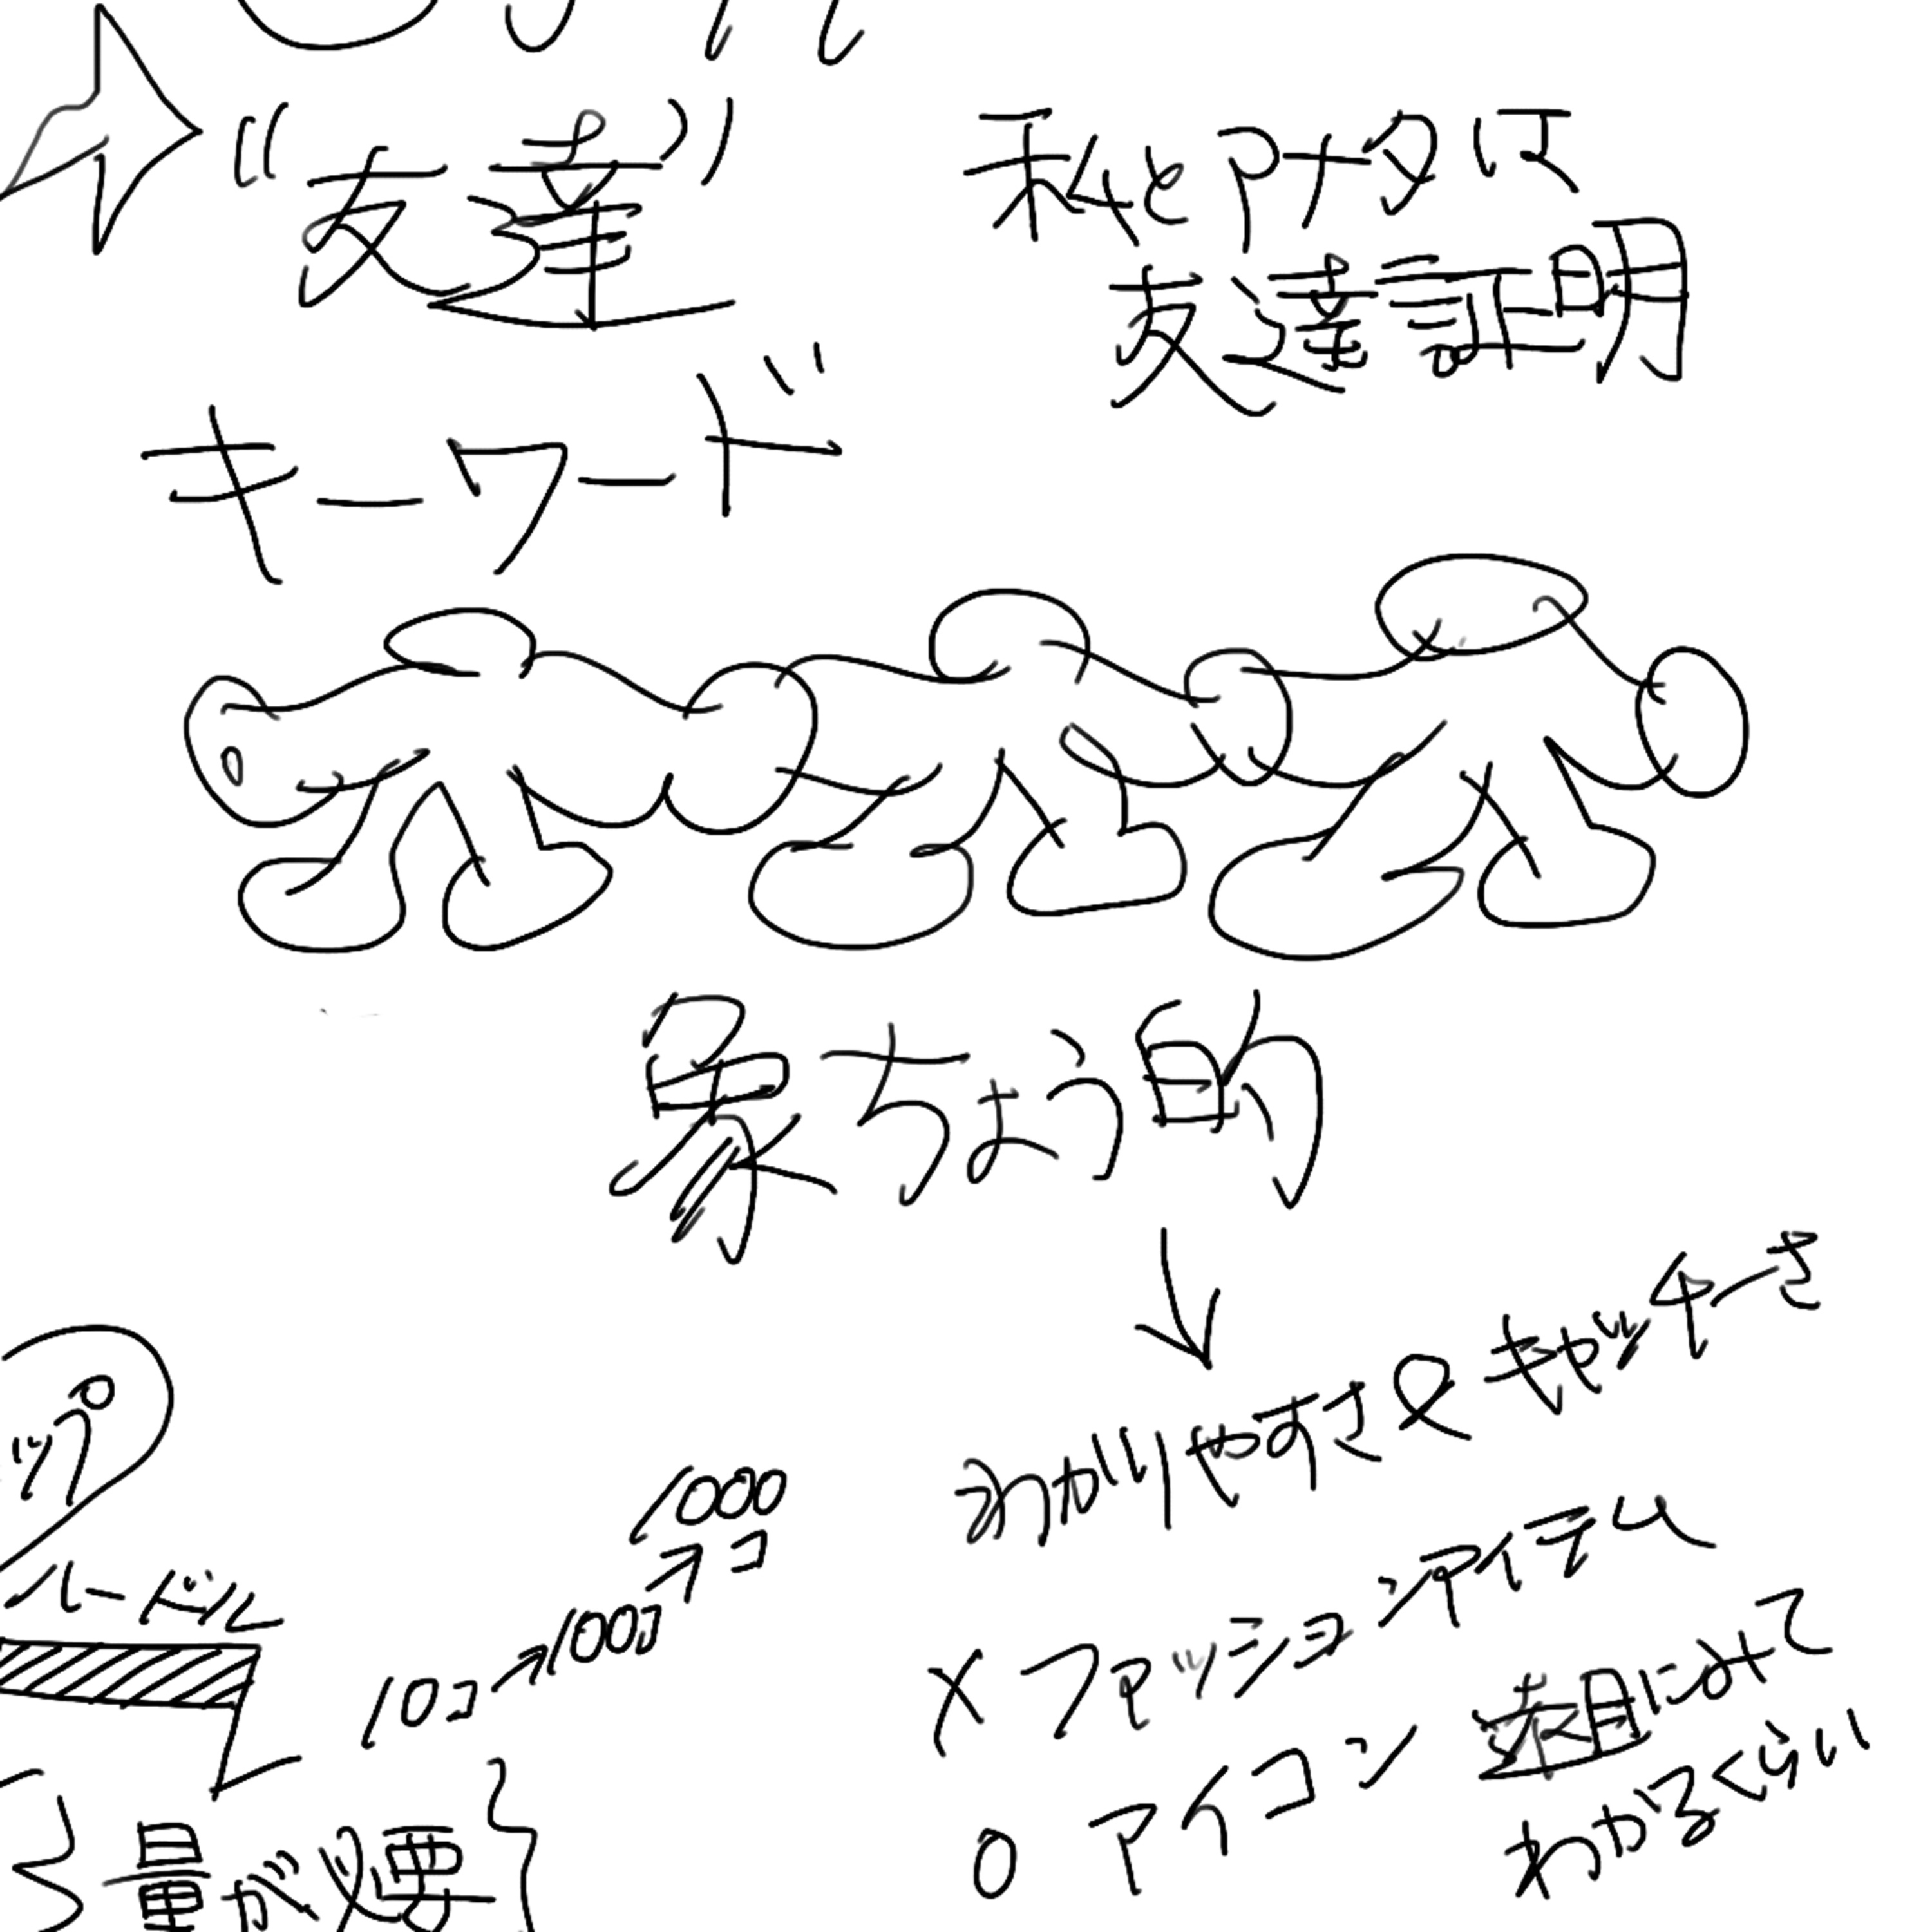 "友達"
キーワード
私とアナタは
友達証明
象ちょう的
↓
わかりやすさ&キャッチーさ
×ファッションアイテム
○アイコン
にみて
わかるくらい
ップ
ハードル
10コ→100コ→1000コ
量が必要